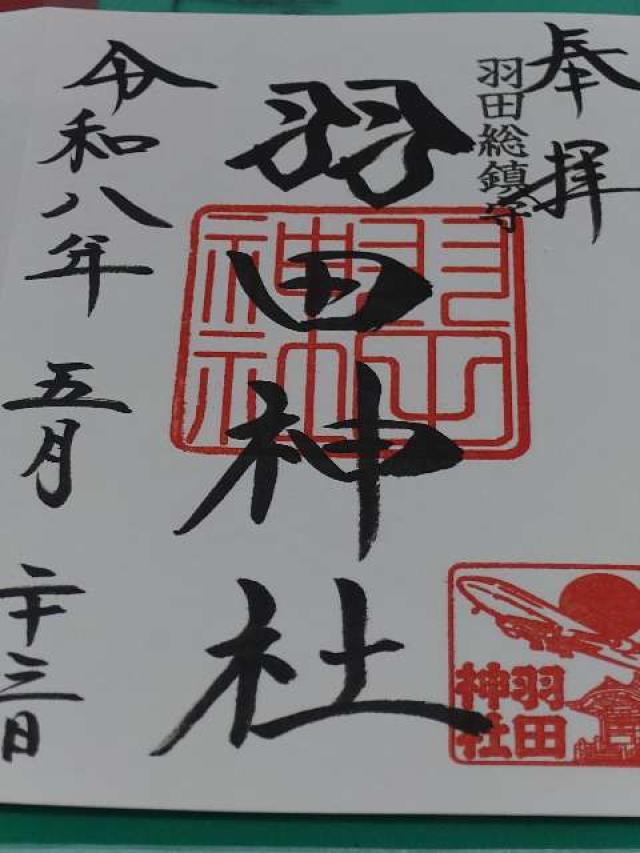 奉拝
羽田総鎮守
羽田神社
羽田神社
羽田
神社
令和八年 五月 二十三日